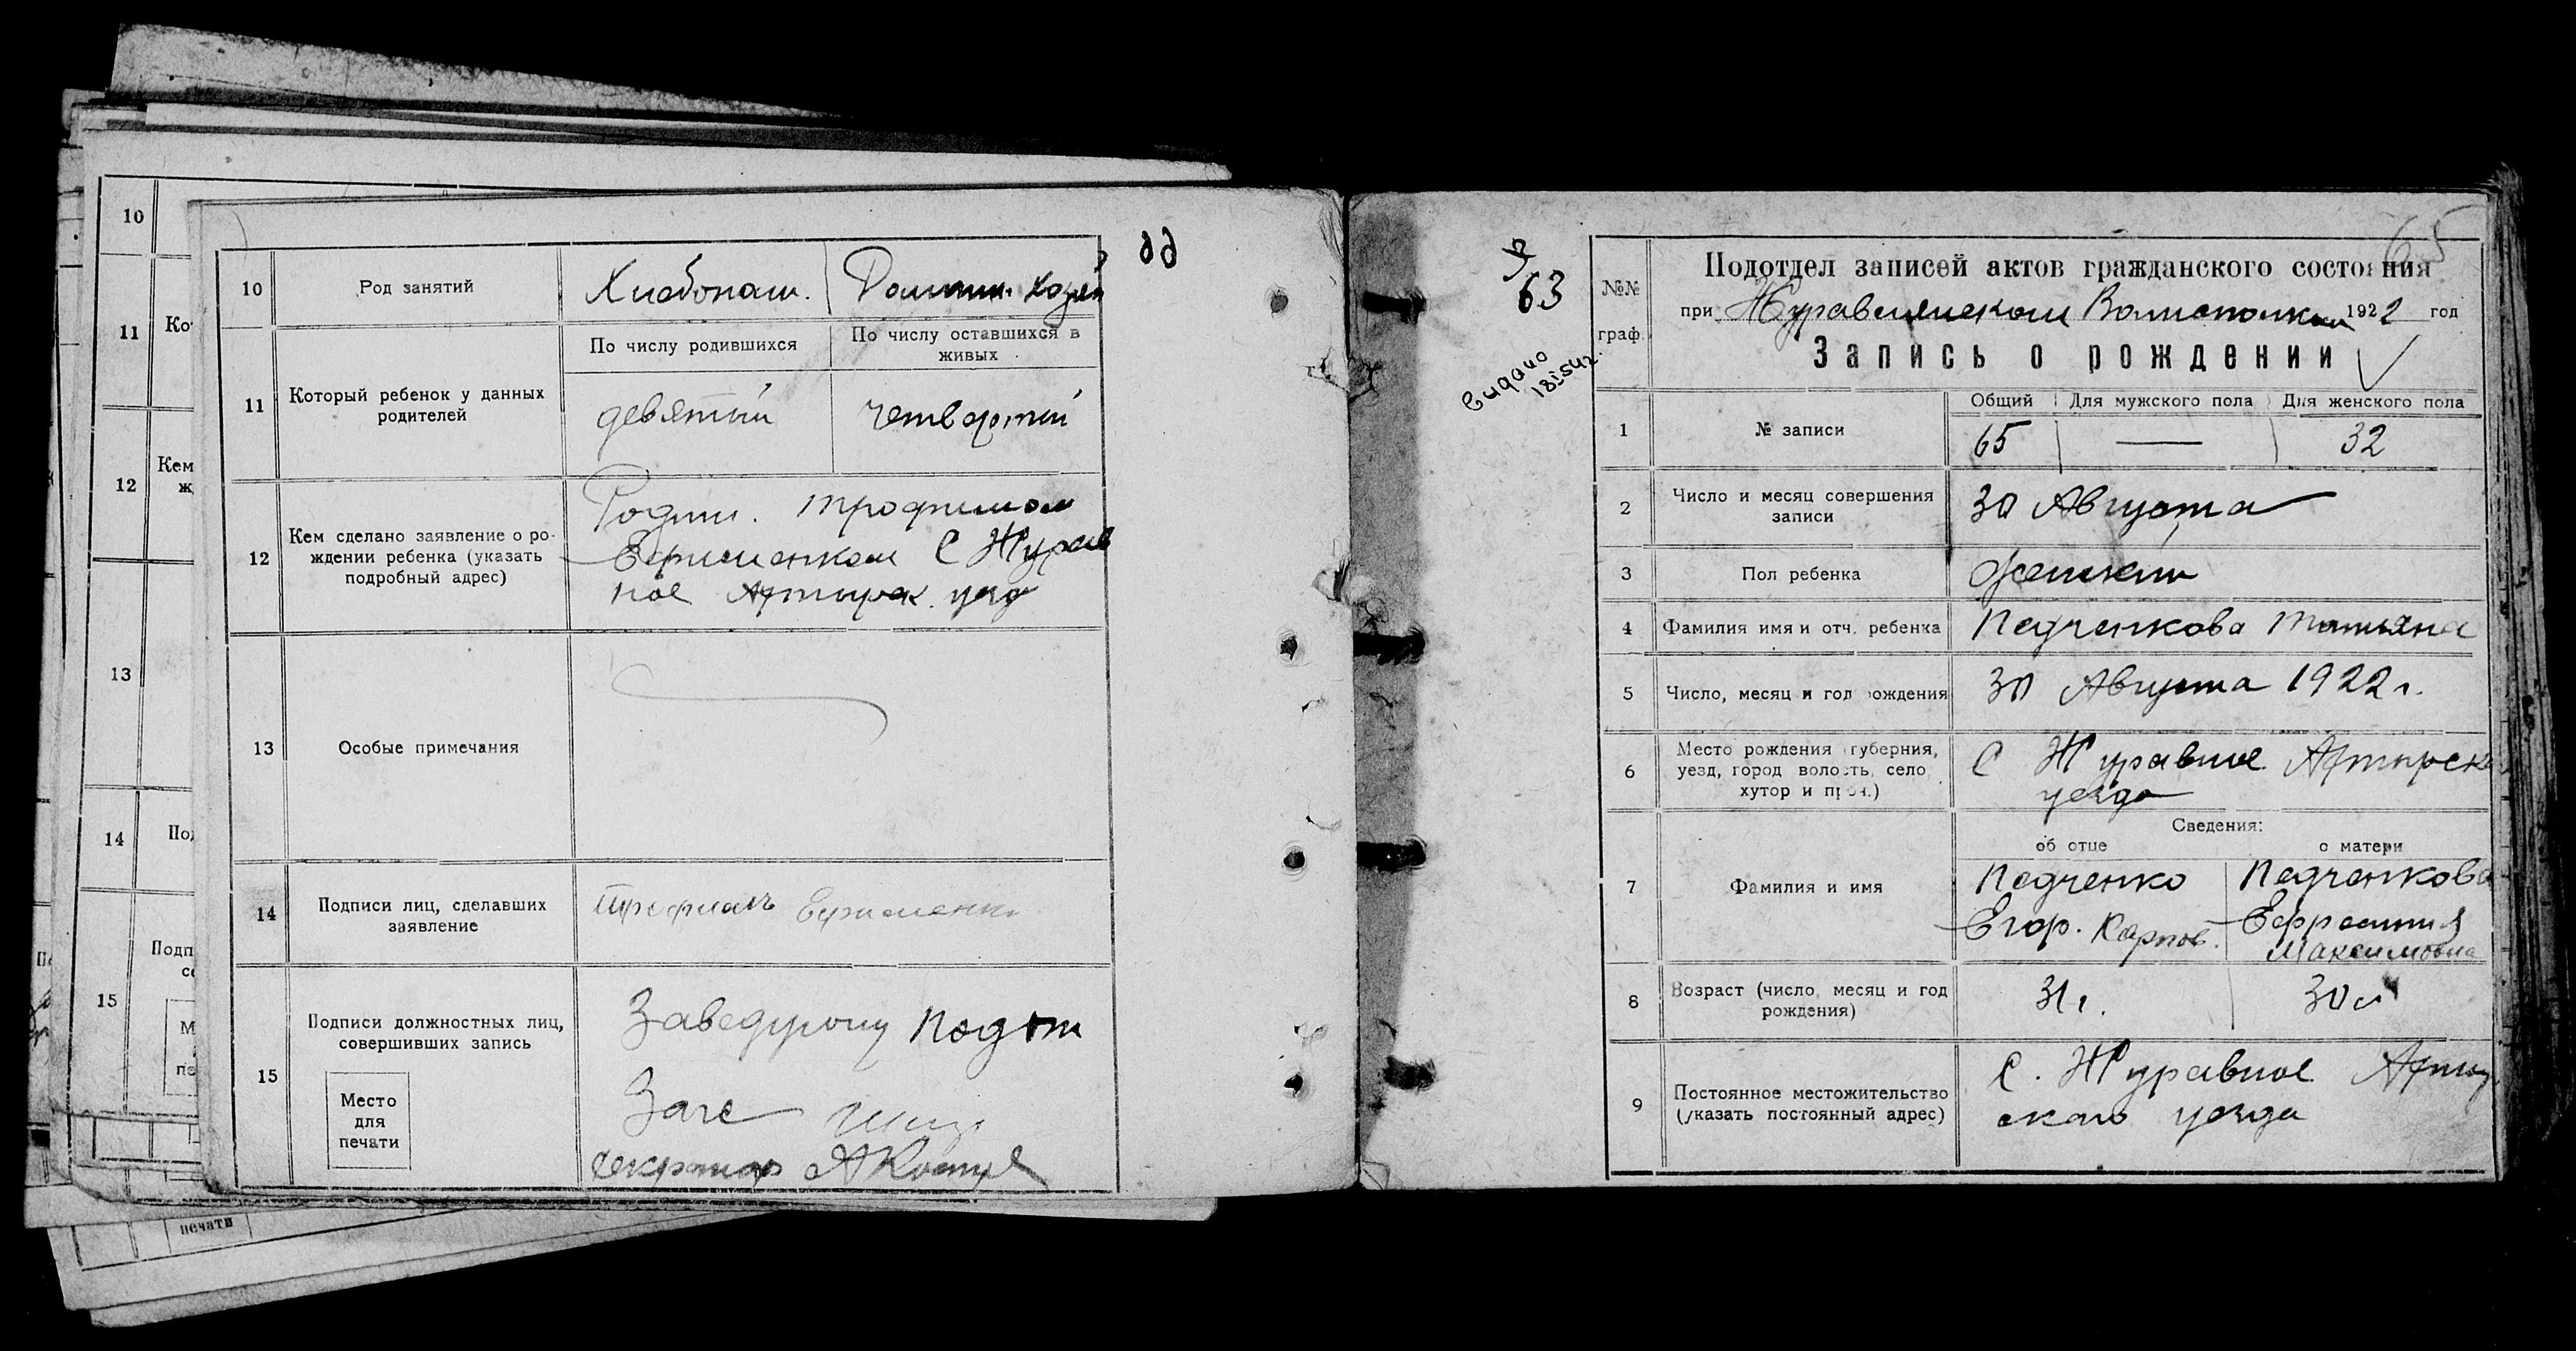 10
Род занятий
Хлебопаш.
Домашн. хозяй
11
Который ребенок у данных
родителей
По числу родившихся
По числу оставшихся в
живых
девятый
четвертый
12
Кем сделано заявление о ро-
ждении ребенка (указать
подробный адрес)
Родит. Трофимом
Ефименком С Журав
ное Ахтырск. уезд
13
Особые примечания
14
Подписи лиц, сделавших
заявление
15
Подписи должностных лиц,
совершивших запись
Место
для
печати
Заведующ Подот
Загс
Секретарь
10
11
Ко
12
Кем
ж
13
14
Под
15
Подп
печати
63
Видано
65
№№
граф.
Подотдел записей актов гражданского состояния
при Журавлянском Волисполком 1922 год
Запись о рождении
1
№ записи
Общий
Для мужского пола
Для женского пола
65
—
32
2
Число и месяц совершения
записи
30 Августа
3
Пол ребенка
Женский
4
Фамилия имя и отч. ребенка
Педченкова Татьяна
5
Число, месяц и год рождения
30 Августа 1922 г.
6
Место рождения (губерния,
уезд, город волость, село,
хутор и проч.)
С Журавное Ахтырск
уезда
Сведения:
об отце
о матери
7
Фамилия и имя
Педченко
Егор. Карпов.
Педченкова
Ефросиния
Максимовна
8
Возраст (число, месяц и год
рождения)
31 г.
30 л
9
Постоянное местожительство
(указать постоянный адрес)
С. Журавное Ахтыр
ского уезда